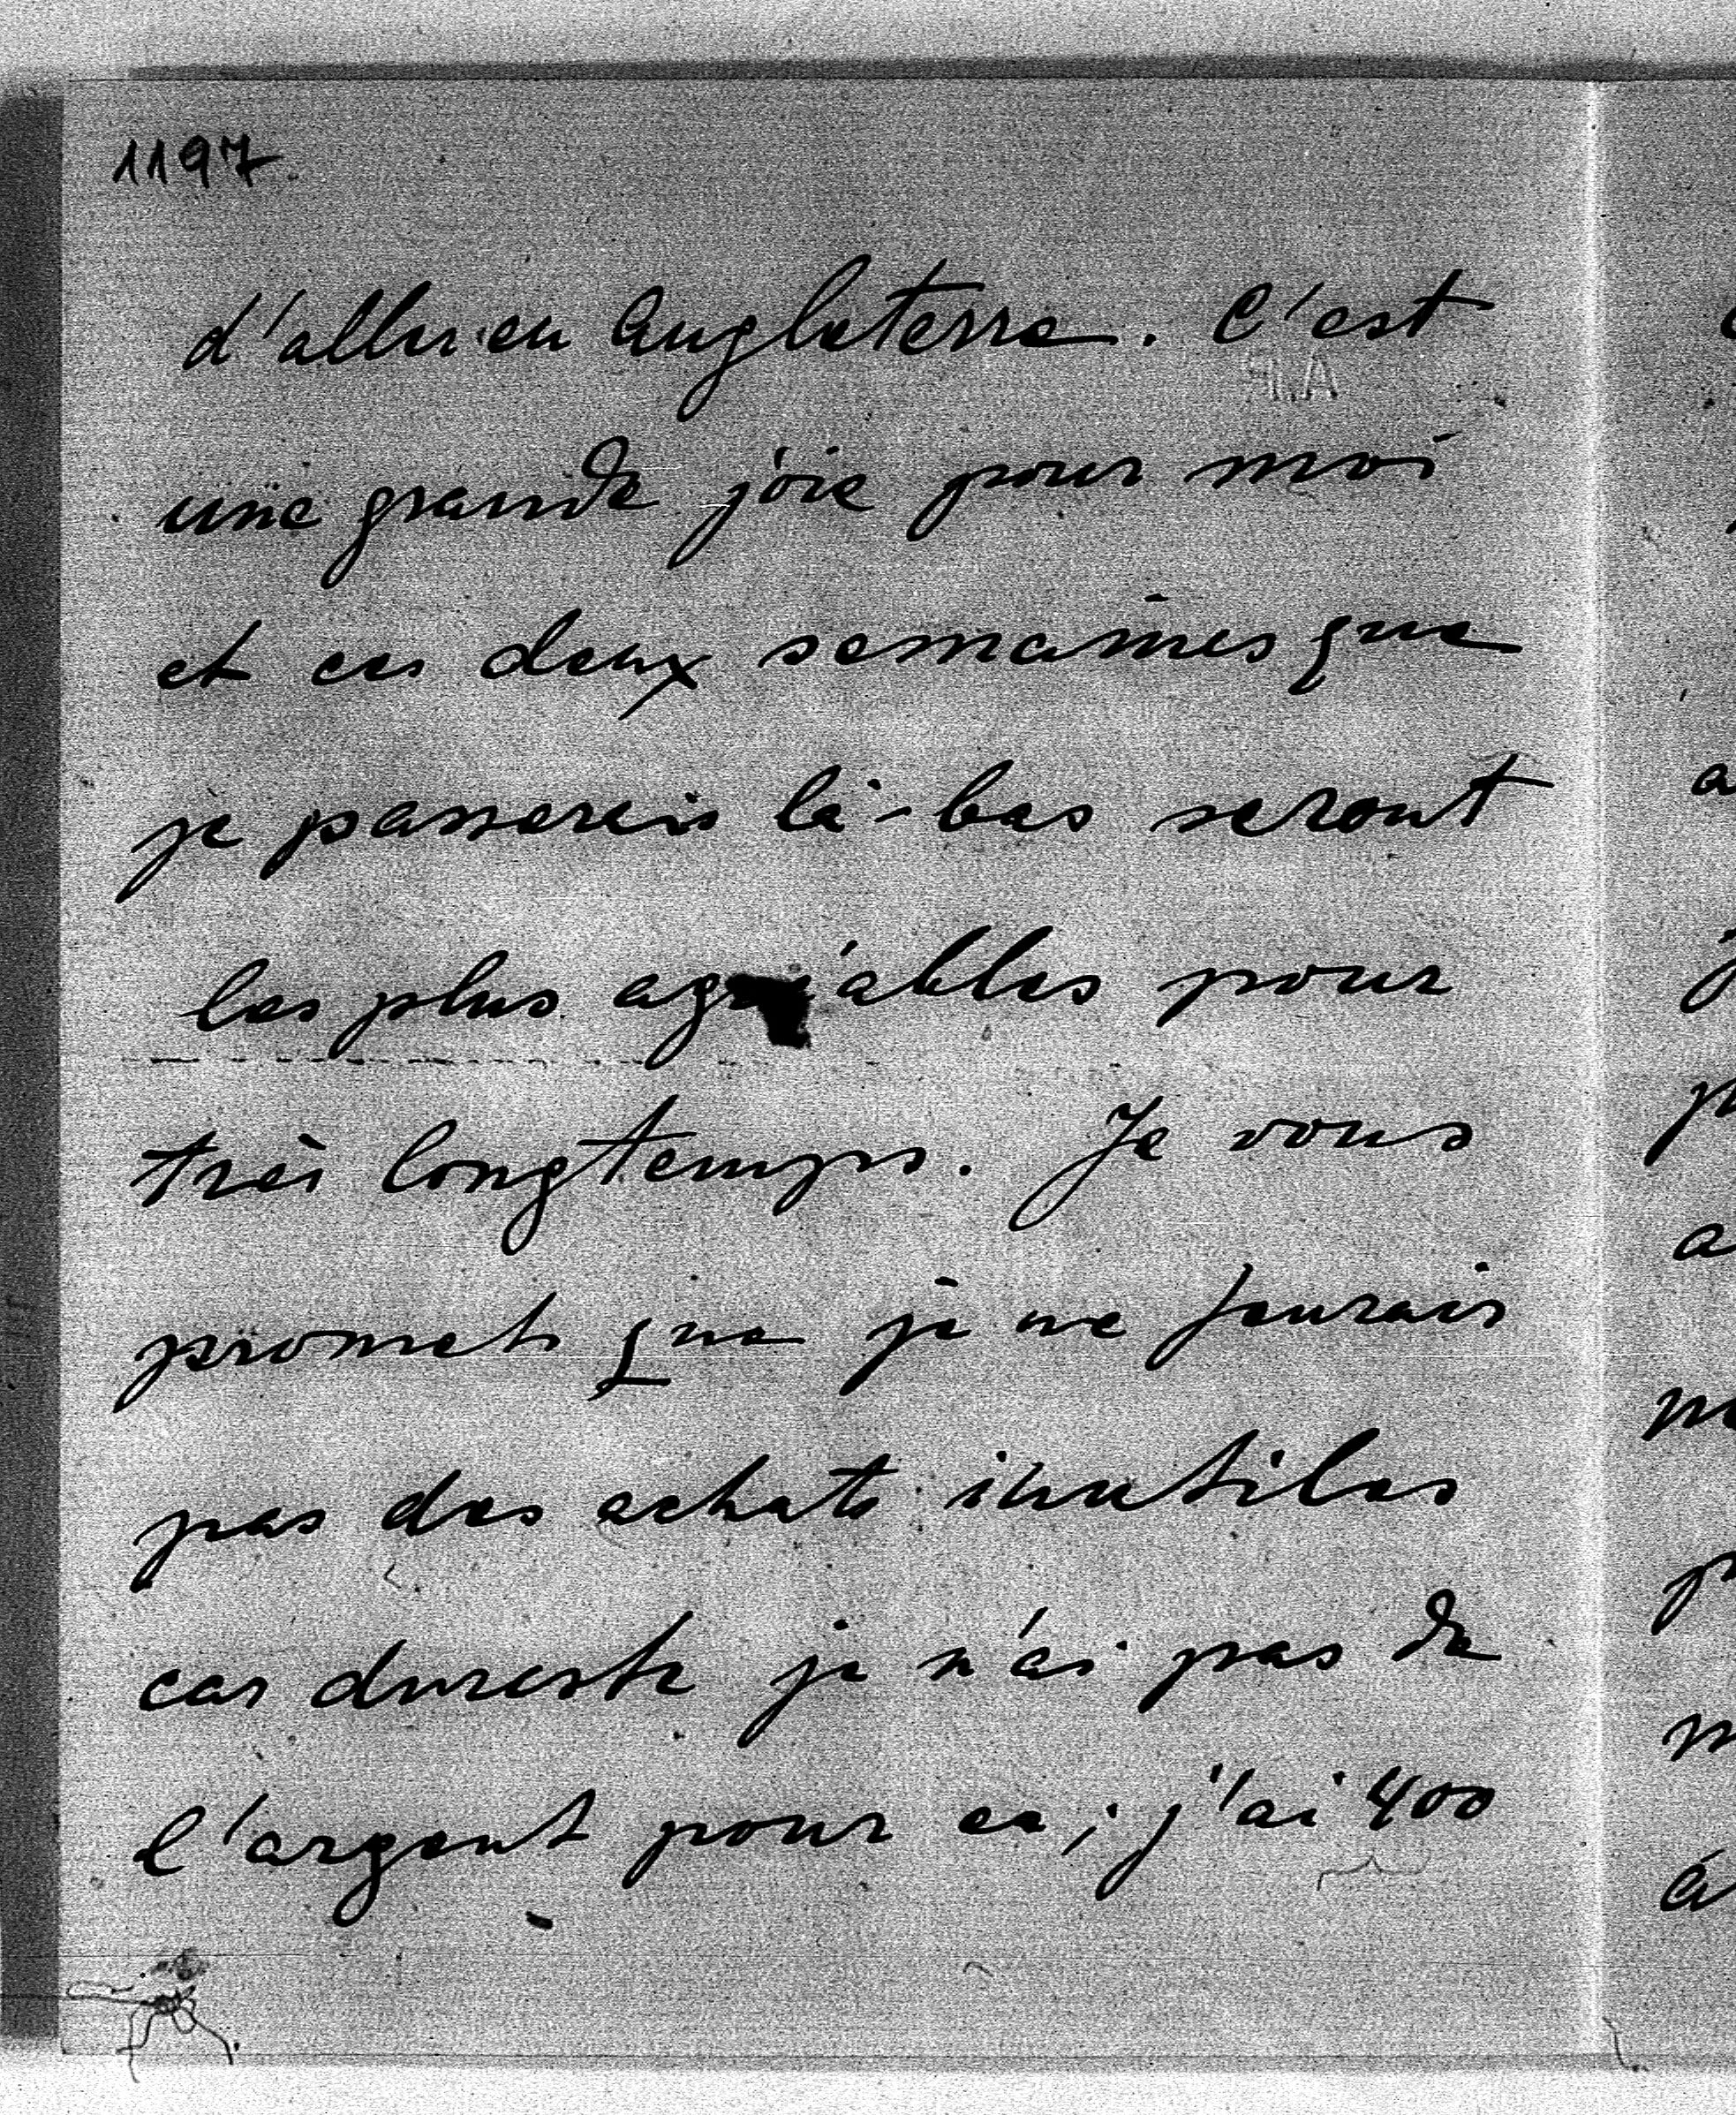 1197.
d'aller en Angleterre. C'est
une grande joie pour moi
et ces deux semaines que
je passerais là-bas seront
les plus agréables pour
très longtemps. Je vous
promets que je ne feurais
pas des achats inutiles
car dureste je n'ai pas de
l'argent pour ca; j'ai 400